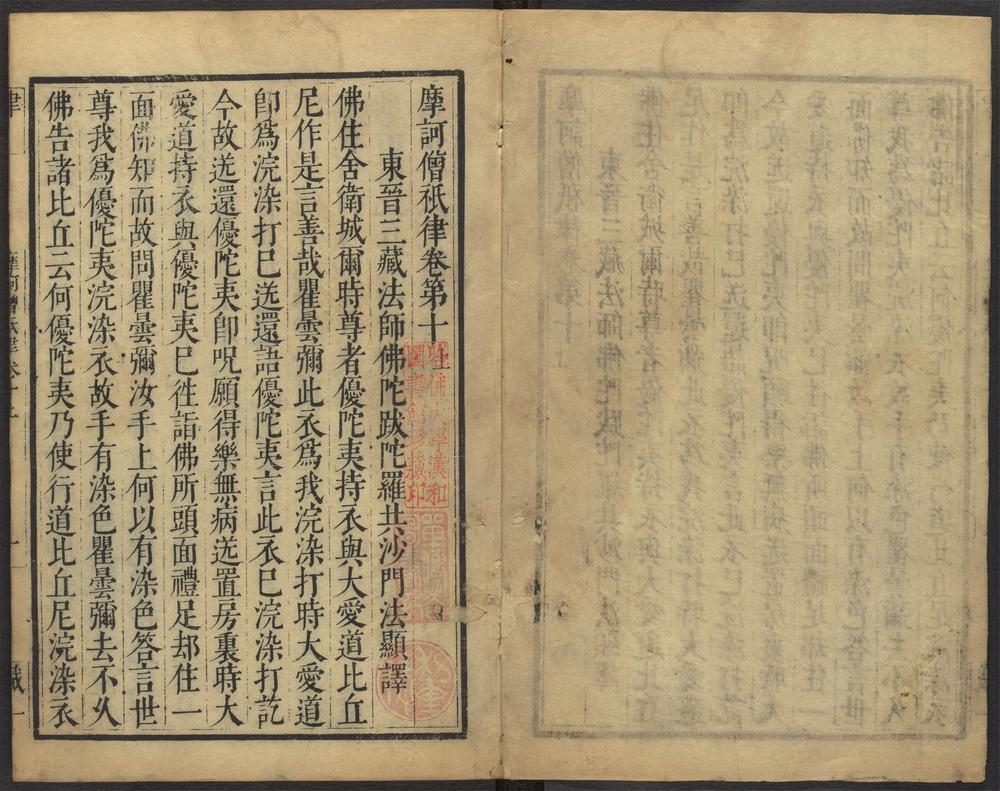 摩訶僧祇律卷第十上
東晉三藏法師佛陀跋陀羅共沙門法顯譯
佛住舍衛城爾時尊者優陀夷持衣與大愛道比丘
尼作是言善哉瞿曇彌此衣爲我浣染打時大愛道
卽爲浣染打已送還語優陀夷言此衣已浣染打訖
今故送還優陀夷卽呪願得樂無病送置房裏時大
愛道持衣與優陀夷已徃詣佛所頭面禮足却住一
面佛知而故問瞿曇彌汝手上何以有染色答言世
尊我爲優陀夷浣染衣故手有染色瞿曇彌去不久
佛告諸比丘云何優陀夷乃使行道比丘尼浣染衣
哈佛大學漢和
圖書館珍藏印
律
摩訶僧祇律卷十上
一